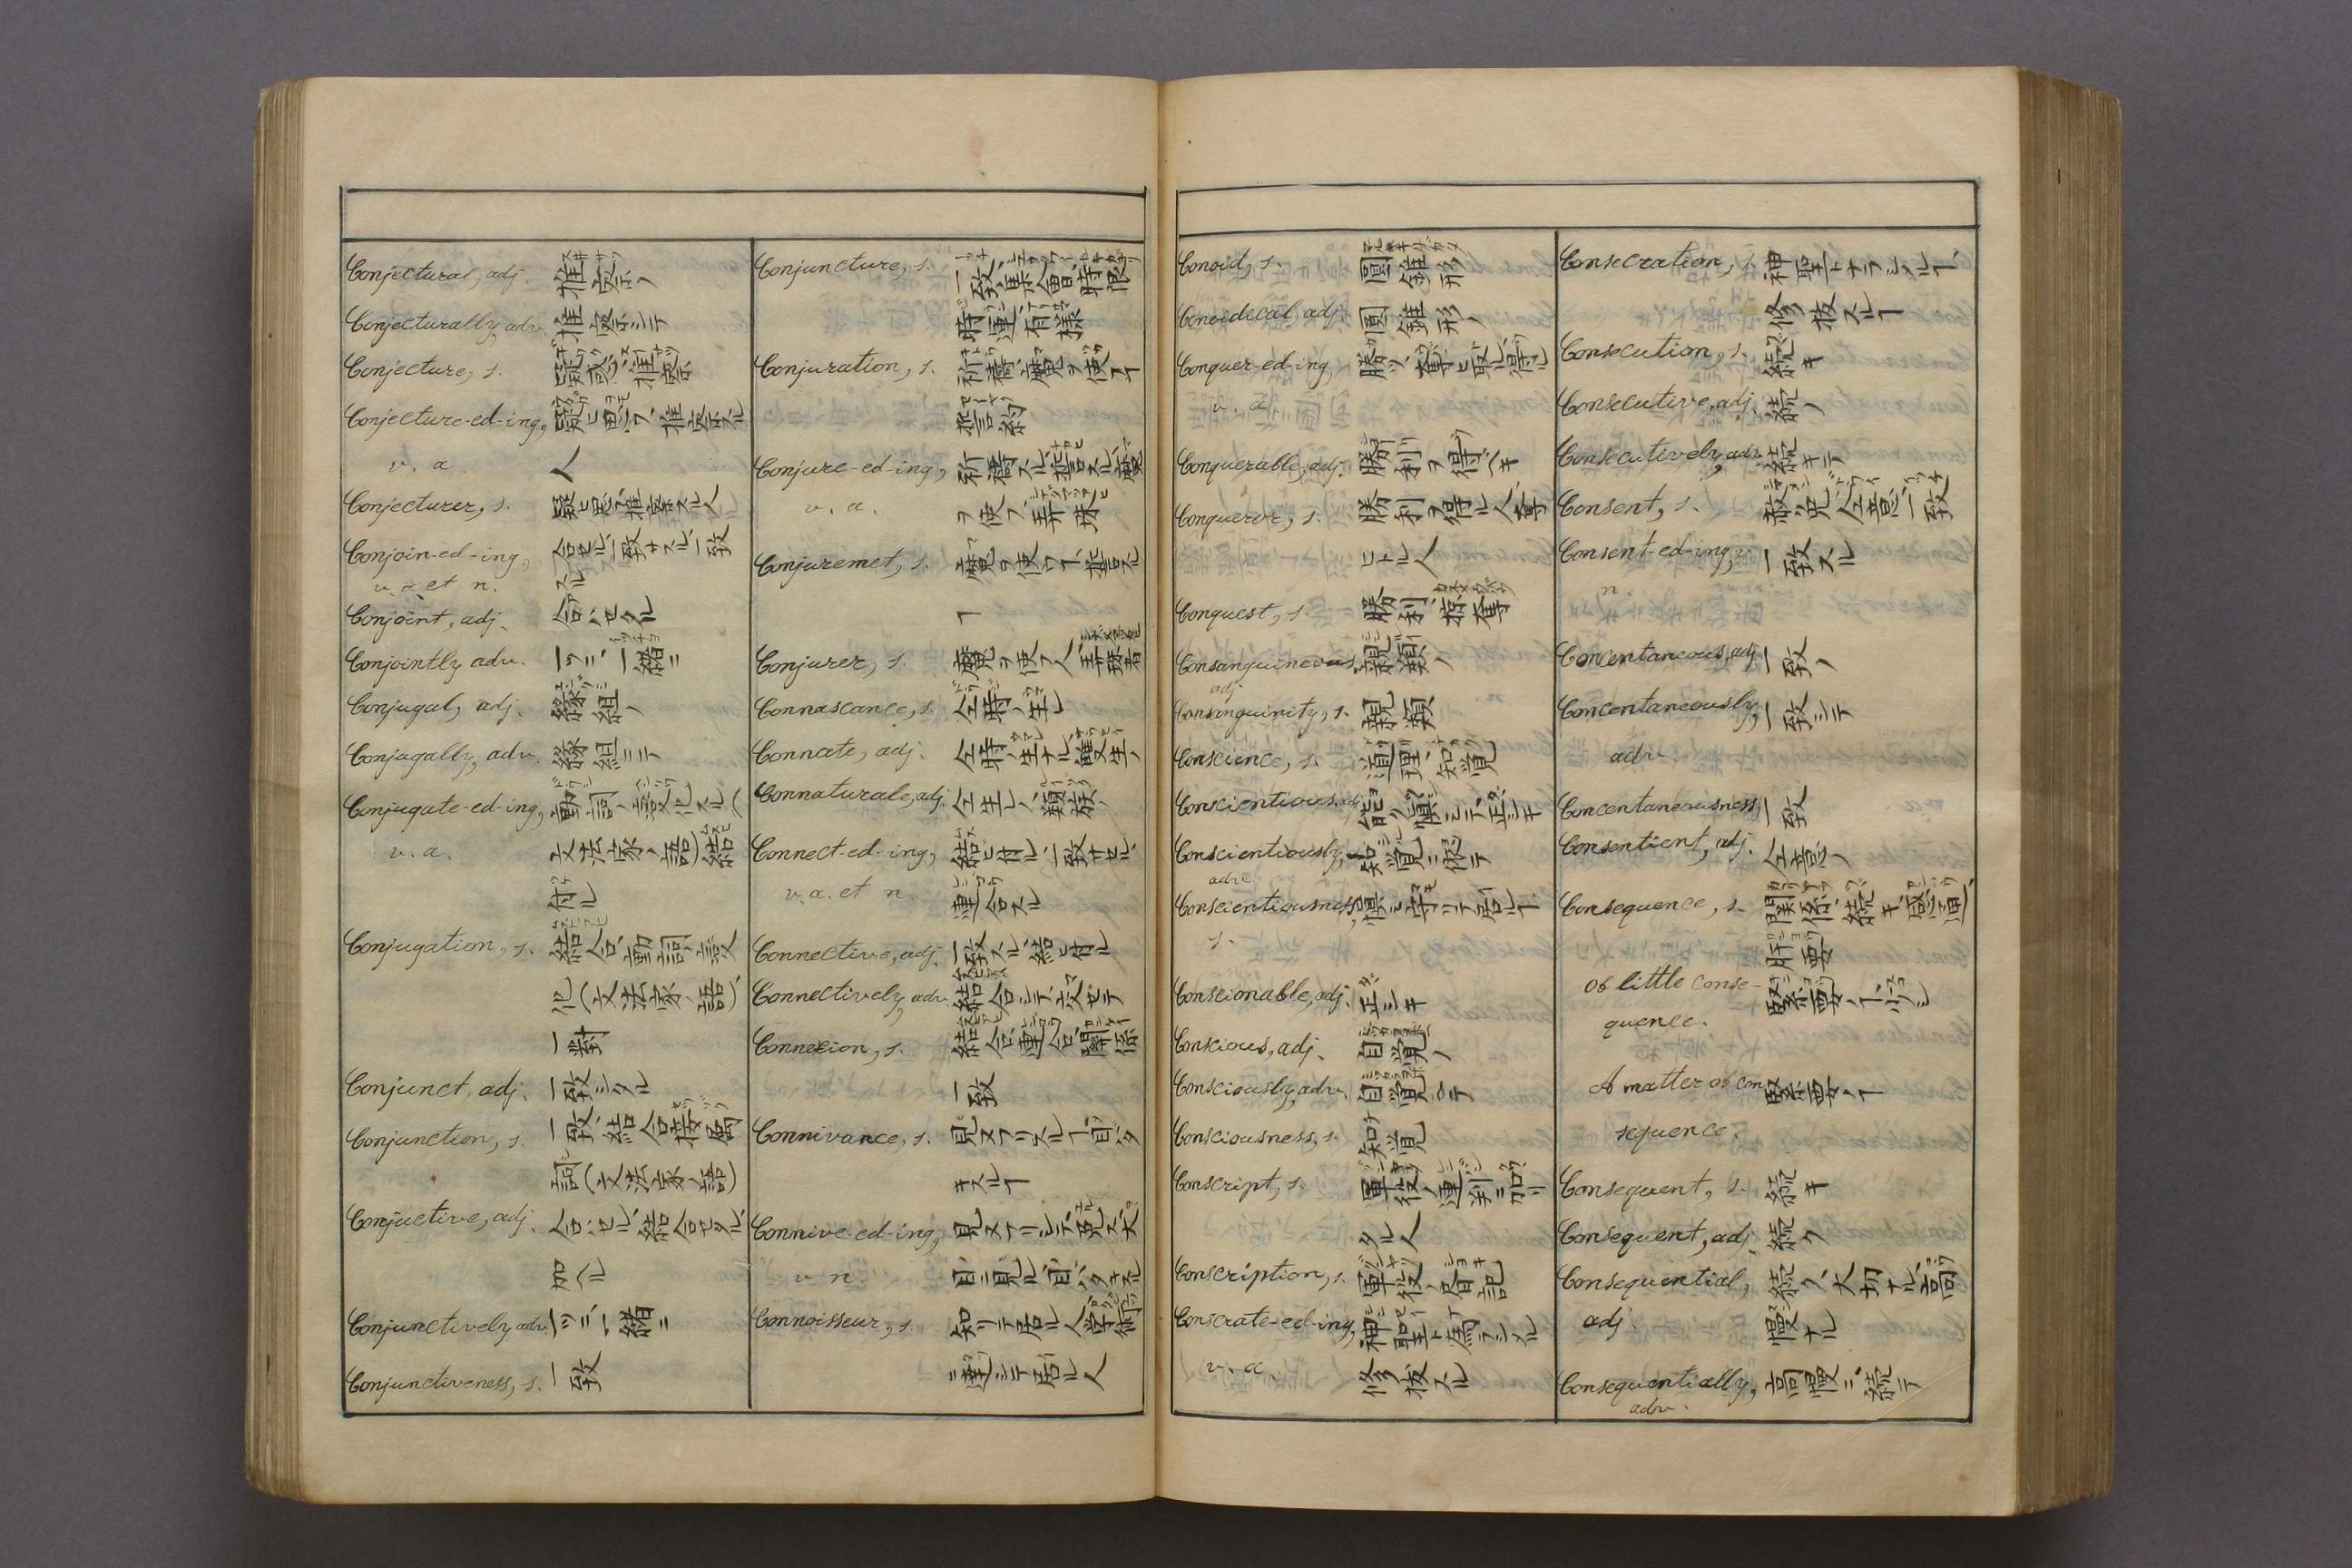 Conjectural, adj. 推察ノ
Conjecturally, adv. 推察シテ
Conjecture, s. 疑惑、推察
Conjecture-ed-ing, 疑ヒ思フ、推察スル
v. a. 人
Conjecturer, s. 疑ヒ思フ推察スル人
Conjoin-ed-ing, 合セル、一致サスル、一致
v. a. et n. スル
Conjoint, adj. 合ハセタル
Conjointly adv. 一ツニ、一緒ニ
Conjugal, adj. 縁組ノ
Conjugally, adv. 縁組ニテ
Conjugate-ed-ing, 動詞ノ変化スル(
v. a. 文法家ノ語)結ヒ
付ル
Conjugation, s. 結合、動詞ノ変
化(文法家ノ語)、
一対
Conjunct, adj. 一致シタル
Conjunction, s. 一致、結合、接属
詞(文法家ノ語)
Conjuctive, adj. 合ハセル、結合セタル、
加ヘル
Conjunctively adv. 一ツニ、一緒ニ
Conjunctiveness, s. 一致
Conjuncture, s. 一致、集会、時限
時運、有様
Conjuration, s. 祈祷、魔鬼ヲ使フヿ
誓約
Conjure-ed-ing, 祈祷スル、誓言スル、魔鬼
v. a. ヲ使フ
Conjuremet, s. 魔鬼ヲ使フヿ、誓言スル
ヿ
Conjurer, s. 魔鬼ヲ使フ人
Connascance, s. 仝時ノ生レ
Connate, adj. 仝時ノ生ナル、雙生ノ
Connaturale, adj. 仝生レノ、類族ノ
Connect-ed-ing, 結ヒ付ル、一致サセル、
v. a. et n. 連合スル
Connective, adj. 一致スル、結ヒ付ル
Connectively adv. 結合シテ、交ゼテ
Connexion, s. 結合、連合、関係
一致
Connivance, s. 見ヌフリスルヿ、目バタ
キスルヿ
Connive-ed-ing, 見ヌフリシテ
v n. 目ニ見ル、目バタキスル
Connoisseur, s. 知リテ居ル人、学術
ニ達シテ居ル人
Conoid, s. 圓錐形
Conoidecal, adj. 圓錐形ノ
Conquer-ed-ing, 勝ツ、奪ヒ取ル、得ル
v. a.
Conquerable, adj. 勝利ヲ得ベキ
Conqueror, s. 勝利ヲ得ル人、奪
ヒトル人
Conquest, s. 勝利、掠奪
Consanguineous, 親類ノ
adj
Consanguinity, s. 親類
Conscience, s. 道理、知覚
Conscientious, adj. 能ク慎ミテ、正シキ
Conscientiously, 知覚ニ従テ
adv.
Conscientiousness, 慎ミ守リテ居ルヿ
s.
Conscionable, adj. 正シキ
Conscious, adj. 自覚ノ
Consciously, adv. 自覚ニテ
Consciousness, s. 知覚
Conscript, s. 軍役ノ連判ニ加リ
タル人
Conscription, s. 軍役ノ着記
Conscrate-ed-ing, 神聖ト為ラシメル
v. a. 修祓スル
Consecration, s. 神聖トナラシメルヿ、
修祓スルヿ
Consecution, s. 続キ
Consecutive, adj. 続ノ
Consecutively, adv. 続キテ
Consent, s. 承允、仝意、一致
Consent-ed-ing, v. 一致スル
n.
Concentaneous, adj. 一致ノ
Concentaneously, 一致シテ
adv.
Concentaneousness, 一致
Consentient, adj. 仝意ノ
Consequence, s. 関係、続キ、感通、
肝要
Of little conse- 緊要ノヿ少シ
quence.
A matter of con 緊要ノヿ
sequence.
Consequent, s. 続キ
Consequent, adj. 続ク
Consequential, 続ク、大切ナル、高
adj. 慢ナル
Consequentially, 高慢ニ、続テ
adv.